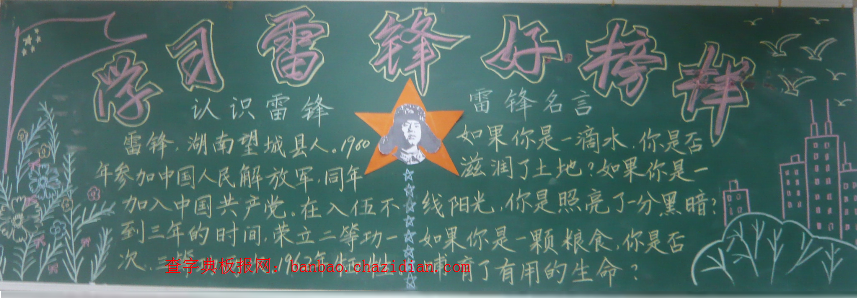 学习雷锋好榜样
认识雷锋
雷锋,湖南望城县人。1960
年参加中国人民解放军,同年
加入中国共产党。在入伍不
到三年的时间,荣立二等功一
次、三
雷锋名言
如果你是一滴水,你是否
滋润了土地?如果你是一
线阳光,你是照亮了一分黑暗?
如果你是一颗粮食,你是否
育了有用的生命?
查字典板报网:banbao.chazidian.com